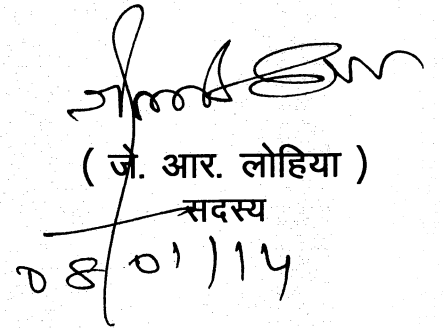 ( जे. आर. लोहिया )
सदस्य
08/01/14